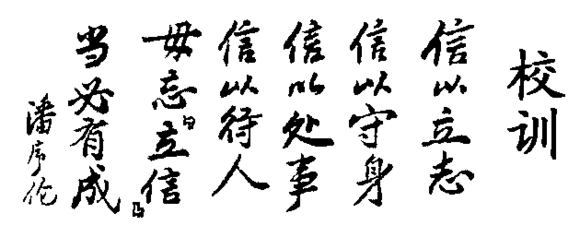 校训
信以立志
信以守身
信以处事
信以待人
毋忘『立信』
当必有成
潘序伦